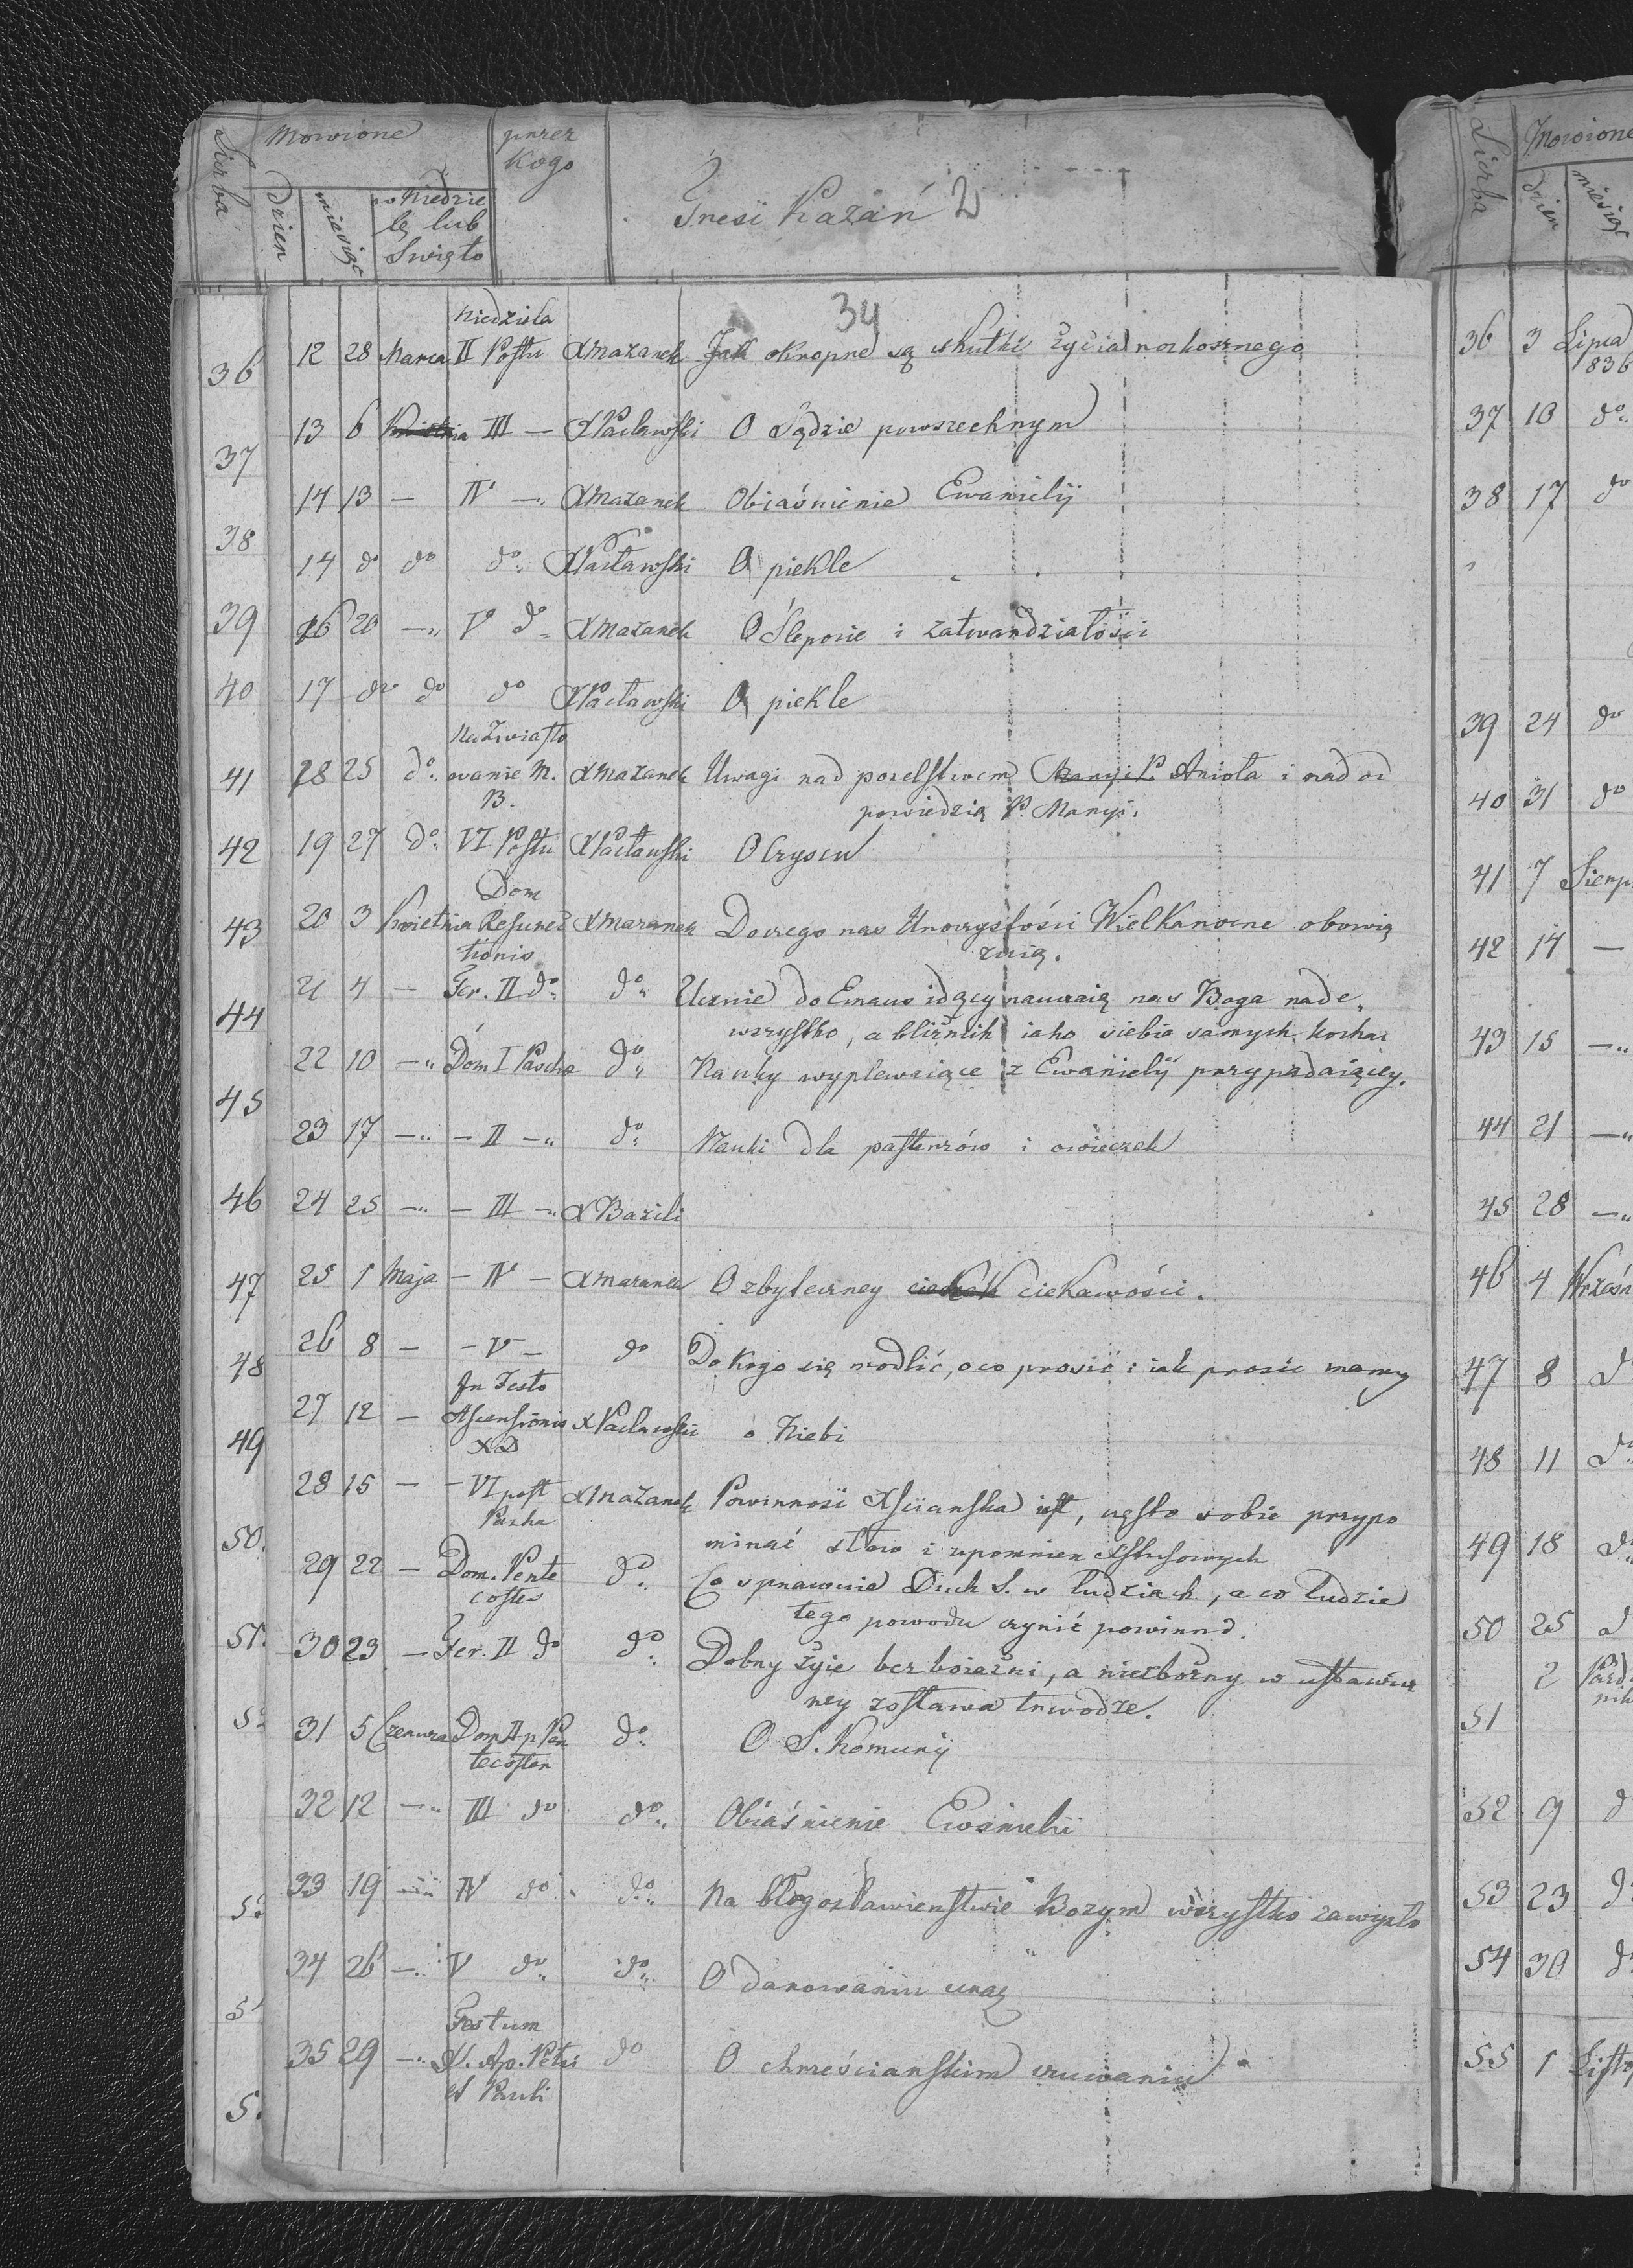 Liczba
Mowione
przez
Kogo
Dzien
miesiąc
w Niedzie
lę lub
Swięto
Treść Kazań
34
Niedziela
36 12 28 Marca II Postu X Mazanek Jak okropne są skutki życia rozkosznego
37 13 6 III — X Pacławski O Sądzie powszechnym
14 13 — IV —„ X Mazanek Obiaśnienie Ewanielij
38 14 do do do X Pacławski O piekle
39 16 20 —„ V do X Mazanek O Slepocie i zatwardziałości
40 17 do do do X Pacławski O piekle
Na Zwiasto
41 18 25 do wanie M. X Mazanek Uwagi nad poselstwem Anioła i nad od
B. powiedzią P. Maryi.
42 19 27 do VI Postu X Pacławski O Czyscu
Dom
43 20 3 Kwietnia Resurec X Mazanek Do czego nas Uroczystości Wielkanocne obowią
tionis zuią.
44 21 4 — Fer. II do do Ucznie do Emaus idący nauczaią nas Boga nade
wszystko, a bliźnich iako siebie samych kochać
22 10 —„ Dom I Pascha do Nauky wypływaiące z Ewanielij przypadaiącey.
45
23 17 —„ — II —„ do Nauki dla pasterzów i owieczek
46 24 25 —„ — III —„ X Bazili
47 25 1 Maja — IV — X Mazanek O zbyteczney ciekawości.
48 26 8 — — V — do Do Kogo się modlić, o co prosić i iak prosić mamy
In Festo
49 27 12 — Ascensionis X Pacławski o Niebi
XD
28 15 — — VI post X Mazanek Powinność Xściańska iest, często sobie przypo
Pasha
50. minać słow i upomnien Xstusowych
29 22 — Dom. Pente do Co sprawuie Duch S. w ludziach, a co ludzie
costes tego powodu czynić powinni.
51. 30 29 — Fer. II do do Dobry żyie bez boiaźni, a niezbożny w ustawicz
ney zostawa trwodze.
31 5 Czerwca Dom II p Pen do O S. Komunij
tecosten
32 12 —„ III do do Obiaśnienie Ewanielii
33 19 —„ IV do do Na błogosławieństwie Bozym wszystko zawisło
34 26 —„ V do do O darowaniu uraz
Festum
35 29 —„ Ap. Petri do O chrześcianskim czuwaniu
et Pauli
Liczba
Mowione
dzien
miesiąc
36 3 Lipca
1836
37 10 do
38 17 do
39 24 do
40 31 do
41 7 Sierp
42 14 —
43 15 —„
44 21 —„
45 28 —„
46 4 Wrześn
47 8 d
48 11 d
49 18 d
50 25 d
2 Paźd
nik
51
52 9 d
53 23 d
54 30 d
55 1 Listop